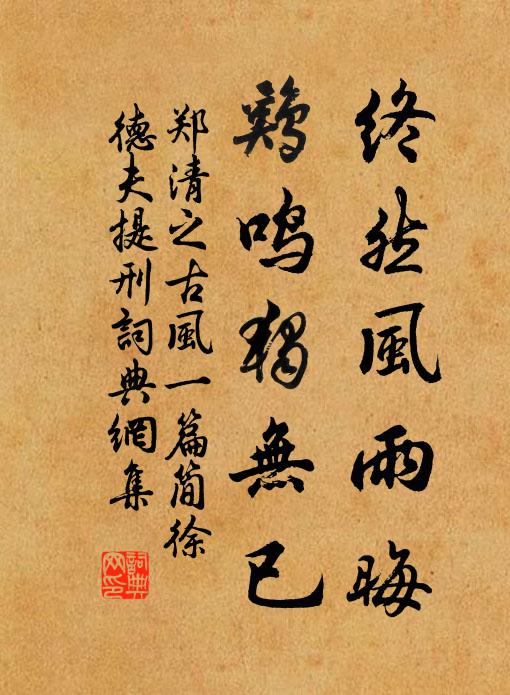 终然風雨晦
鷄鸣獨無已
郑清之古風一篇简徐
德夫提刑詞典網集
詞典网印